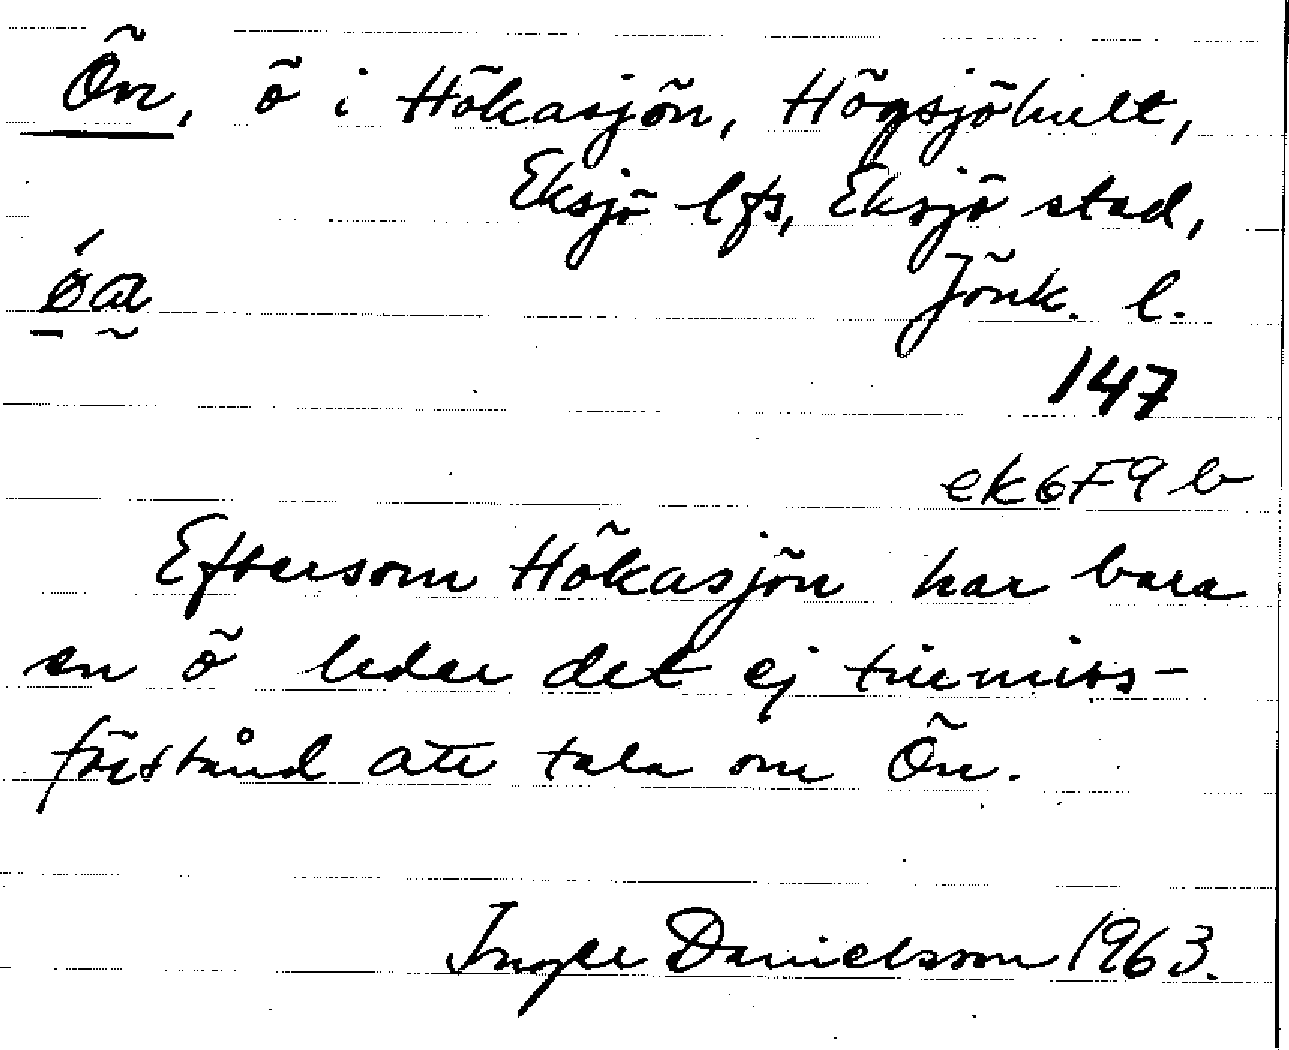 Ön, ö i Hökasjön, Högsjöhult,
Eksjö lfs, Eksjö stad,
Jönk. l.
147
ek6F9b
Eftersom Hökasjön har bara
en ö leder det ej till miss-
förstånd att tala om Ön.
Inger Danielsson 1963.